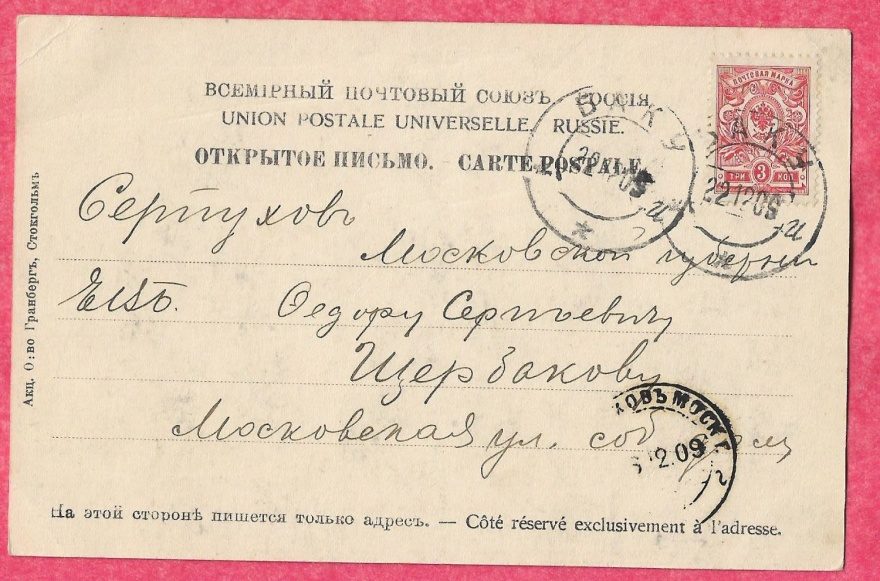 ВСЕМІРНЫЙ ПОЧТОВЫЙ СОЮЗЪ. РОССІЯ.
UNION POSTALE UNIVERSELLE. RUSSIE.
ОТКРЫТОЕ ПИСЬМО. — CARTE POSTALE
ПОЧТОВАЯ МАРКА
ТРИ 3 КОП
БАКУ
БАКУ
22.12.09
Серпуховъ
Московской губерніи
Ѳедору Сергѣевичу
Щербакову
Московская ул. соб дом
ХОВЪ МОСК Г
2.09
На этой сторонѣ пишется только адресъ. — Côté réservé exclusivement à l'adresse.
Акц. О:во Гранбергъ, Стокгольмъ